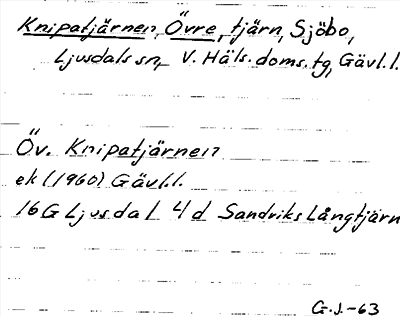 Knipatjärnen, Övre, tjärn, Sjöbo,
Ljusdals sn, V. Häls. doms. tg, Gävl.l.
Öv. Knipatjärnen
ek (1960) Gävl.l.
16G Ljusdal 4d Sandriks Långtjärn
G.J.-63